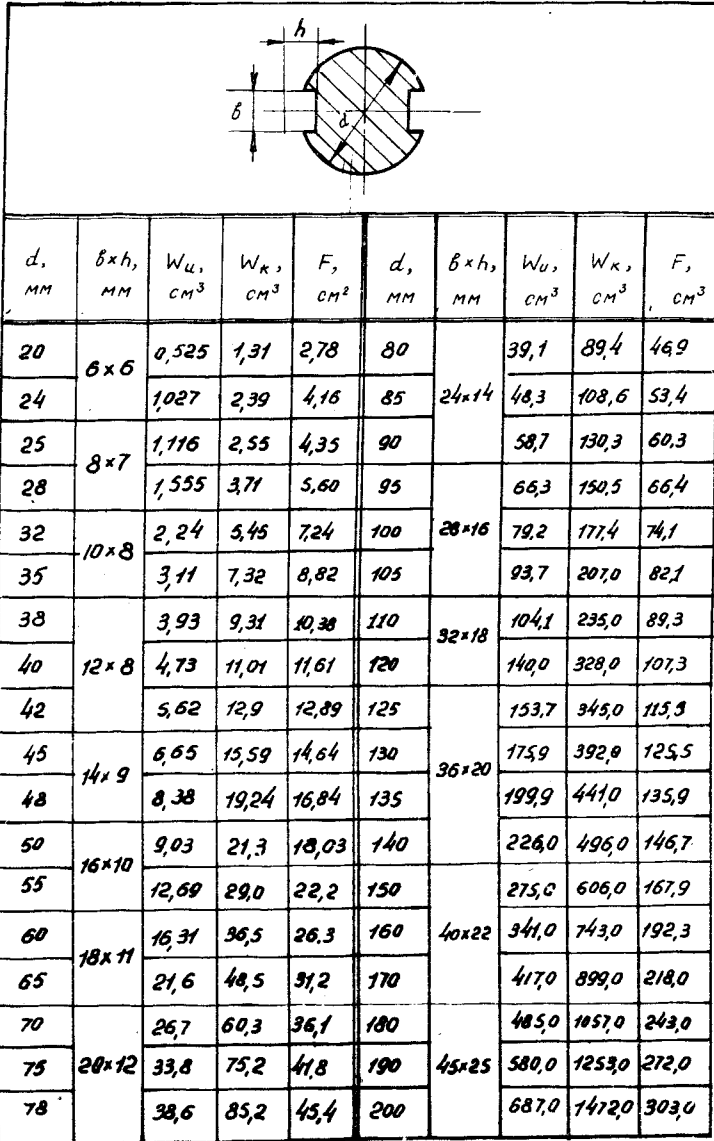 h
в
d
d, мм | в×h, мм | Wи, см³ | Wк, см³ | F, см² | d, мм | в×h, мм | Wи, см³ | Wк, см³ | F, см³
20 | 6×6 | 0,525 | 1,31 | 2,78 | 80 | 24×14 | 39,1 | 89,4 | 46,9
24 | 1,027 | 2,39 | 4,16 | 85 | 48,3 | 108,6 | 53,4
25 | 8×7 | 1,116 | 2,55 | 4,35 | 90 | 58,7 | 130,3 | 60,3
28 | 1,555 | 3,71 | 5,60 | 95 | 28×16 | 66,3 | 150,5 | 66,4
32 | 10×8 | 2,24 | 5,45 | 7,24 | 100 | 79,2 | 177,4 | 74,1
35 | 3,11 | 7,32 | 8,82 | 105 | 93,7 | 207,0 | 82,1
38 | 12×8 | 3,93 | 9,31 | 10,38 | 110 | 32×18 | 104,1 | 235,0 | 89,3
40 | 4,73 | 11,01 | 11,61 | 120 | 140,0 | 328,0 | 107,3
42 | 5,62 | 12,9 | 12,89 | 125 | 36×20 | 153,7 | 345,0 | 115,5
45 | 14×9 | 6,65 | 15,59 | 14,64 | 130 | 175,9 | 392,0 | 125,5
48 | 8,38 | 19,24 | 16,84 | 135 | 199,9 | 441,0 | 135,9
50 | 16×10 | 9,03 | 21,3 | 18,03 | 140 | 226,0 | 496,0 | 146,7
55 | 12,69 | 29,0 | 22,2 | 150 | 40×22 | 275,0 | 606,0 | 167,9
60 | 18×11 | 16,31 | 36,5 | 26.3 | 160 | 341,0 | 743,0 | 192,3
65 | 21,6 | 48,5 | 31,2 | 170 | 417,0 | 899,0 | 218,0
70 | 20×12 | 26,7 | 60,3 | 36,1 | 180 | 45×25 | 485,0 | 1057,0 | 243,0
75 | 33,8 | 75,2 | 41,8 | 190 | 580,0 | 1253,0 | 272,0
78 | 38,6 | 85,2 | 45,4 | 200 | 687,0 | 1472,0 | 303,0